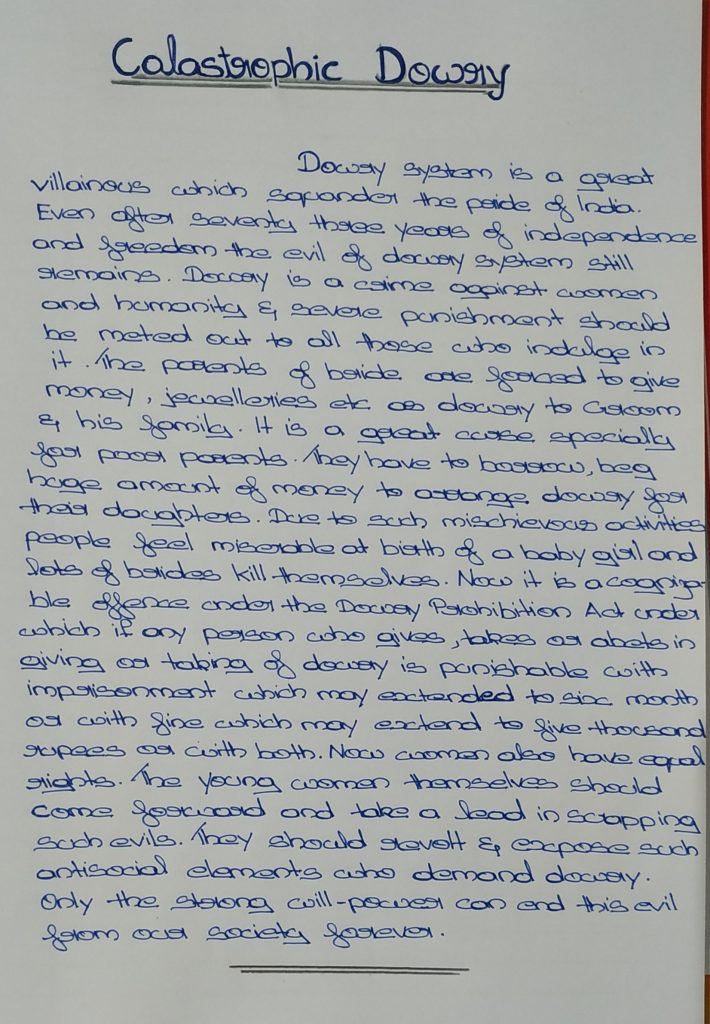 Catastrophic Dowry
Dowry system is a great
villainous which squander the pride of India.
Even after seventy three years of independence
and freedom the evil of dowry system still
remains. Dowry is a crime against women
and humanity & severe punishment should
be meted out to all those who indulge in
it. The parents of bride are forced to give
money, jewelleries etc as dowry to Groom
& his family. It is a great curse specially
for poor parents. They have to borrow, beg
huge amount of money to arrange dowry for
their daughters. Due to such mischievous activities
people feel miserable at birth of a baby girl and
lots of brides kill themselves. Now it is a cogniza-
ble offence under the Dowry Prohibition Act under
which if any person who gives, takes or abets in
giving or taking of dowry is punishable with
imprisonment which may extended to six month
or with fine which may extend to five thousand
rupees or with both. Now women also have equal
rights. The young women themselves should
come forward and take a lead in scrapping
such evils. They should revolt & expose such
antisocial elements who demand dowry.
Only the strong will-power can end this evil
from our society forever.